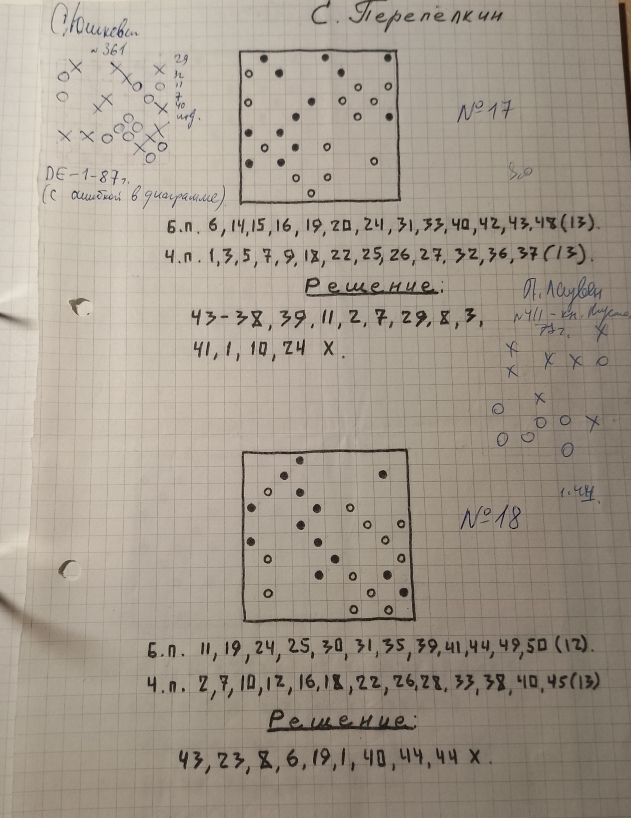 С. Юшкевич
С. Перепёлкин
№361
29
32
11
7
40
№17
DE-1-87г.
(с ошибкой в диаграмме).
Б.п. 6, 14, 15, 16, 19, 20, 24, 31, 33, 40, 42, 43, 48 (13).
Ч.п. 1, 3, 5, 7, 9, 18, 22, 25, 26, 27, 32, 36, 37 (13).
Решение:
43-38, 39, 11, 2, 7, 29, 8, 3,
41, 1, 10, 24 X.
№18
Б.п. 11, 19, 24, 25, 30, 31, 35, 39, 41, 44, 49, 50 (12).
Ч.п. 2, 7, 10, 12, 16, 18, 22, 26, 28, 33, 38, 40, 45 (13)
Решение:
43, 23, 8, 6, 19, 1, 40, 44, 44 X.